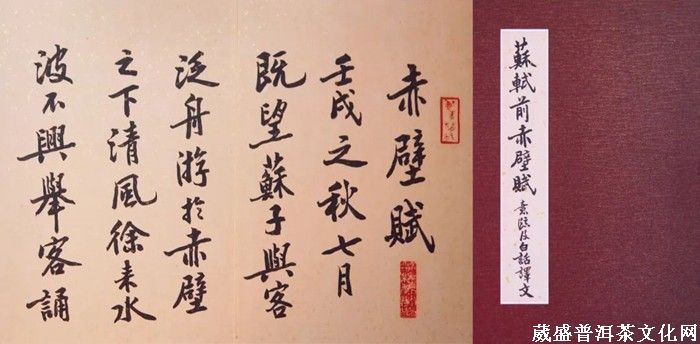 蘇軾前赤壁賦
及白話譯文
赤壁賦
壬戌之秋七月
既望蘇子與客
泛舟游於赤壁
之下清風徐来水
波不興舉客誦
葳盛普洱茶文化网